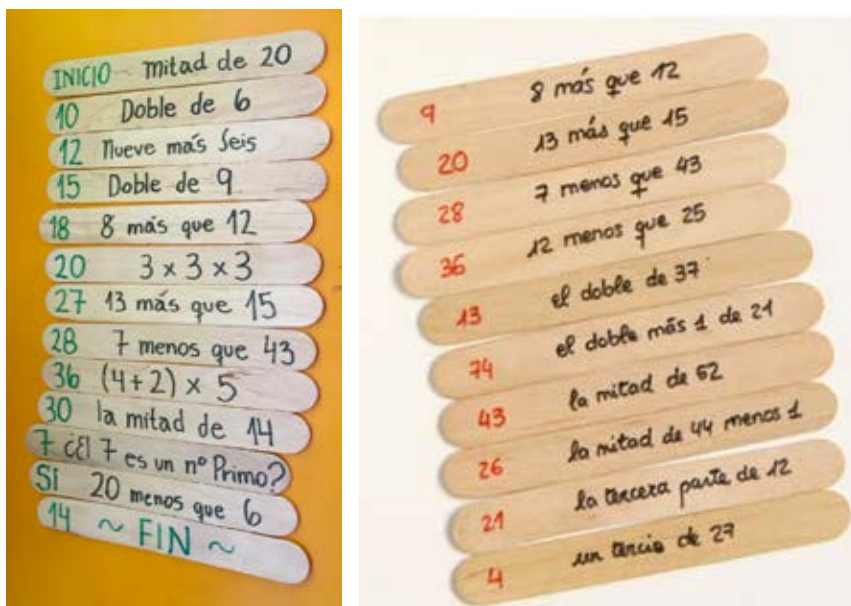 INICIO mitad de 20
10 Doble de 6
12 Nueve más Seis
15 Doble de 9
18 8 más que 12
20 3 x 3 x 3
27 13 más que 15
28 7 menos que 43
36 (4+2) x 5
30 la mitad de 14
7 ¿El 7 es un nº Primo?
SI 20 menos que 6
14 ~ FIN ~
9 8 más que 12
20 13 más que 15
28 7 menos que 43
36 12 menos que 25
13 el doble de 37
74 el doble más 1 de 21
43 la mitad de 52
26 la mitad de 44 menos 1
21 la tercera parte de 12
4 un tercio de 27